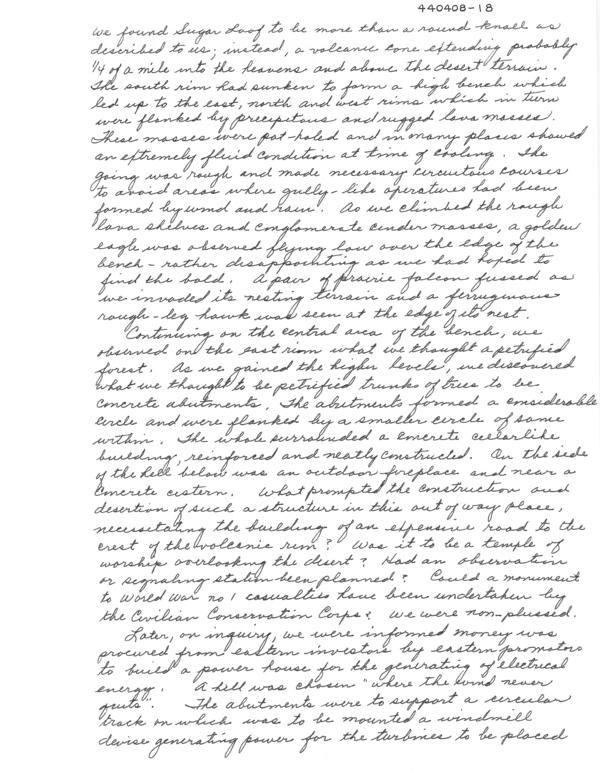 440408-18
we found Sugar Loaf to be more than a round knoll as
described to us; instead, a volcanic cone extending probably
1/4 of a mile into the heavens and above the desert terrain.
The south rim had sunken to form a high bench which
led up to the east, north and west rims which in turn
were flanked by precipitous and rugged lava masses.
These masses were pot-holed and in many places showed
an extremely fluid condition at time of cooling. The
going was rough and made necessary circuitous courses
to avoid areas where gully-like operatures had been
formed by wind and rain. As we climbed the rough
lava shelves and conglomerate cinder masses, a golden
eagle was observed flying low over the edge of the
bench - rather disappointing as we had hoped to
find the bald. A pair of prairie falcon fussed as
we invaded its nesting terrain and a ferruginous
rough-leg hawk was seen at the edge of its nest.
Continuing on the central area of the bench, we
observed on the east rim what we thought a petrified
forest. As we gained the higher levels, we discovered
what we thought to be petrified trunks of trees to be
concrete abutments. The abutments formed a considerable
circle and were flanked by a smaller circle of same
within. The whole surrounded a concrete cellarlike
building, reinforced and neatly constructed. On the side
of the hill below was an outdoor fireplace and near a
concrete cistern. What prompted the construction and
desertion of such a structure in this out of way place,
necessitating the building of an expensive road to the
crest of the volcanic rim? Was it to be a temple of
worship overlooking the desert? Had an observation
or signaling station been planned? Could a monument
to World War no 1 casualties have been undertaken by
the Civilian Conservation Corps? We were non-plussed.
Later, on inquiry, we were informed money was
procured from eastern investors by eastern promotors
to build a power house for the generating of electrical
energy. A hill was chosen "where the wind never
quits". The abutments were to support a circular
track on which was to be mounted a windmill
devise generating power for the turbines to be placed